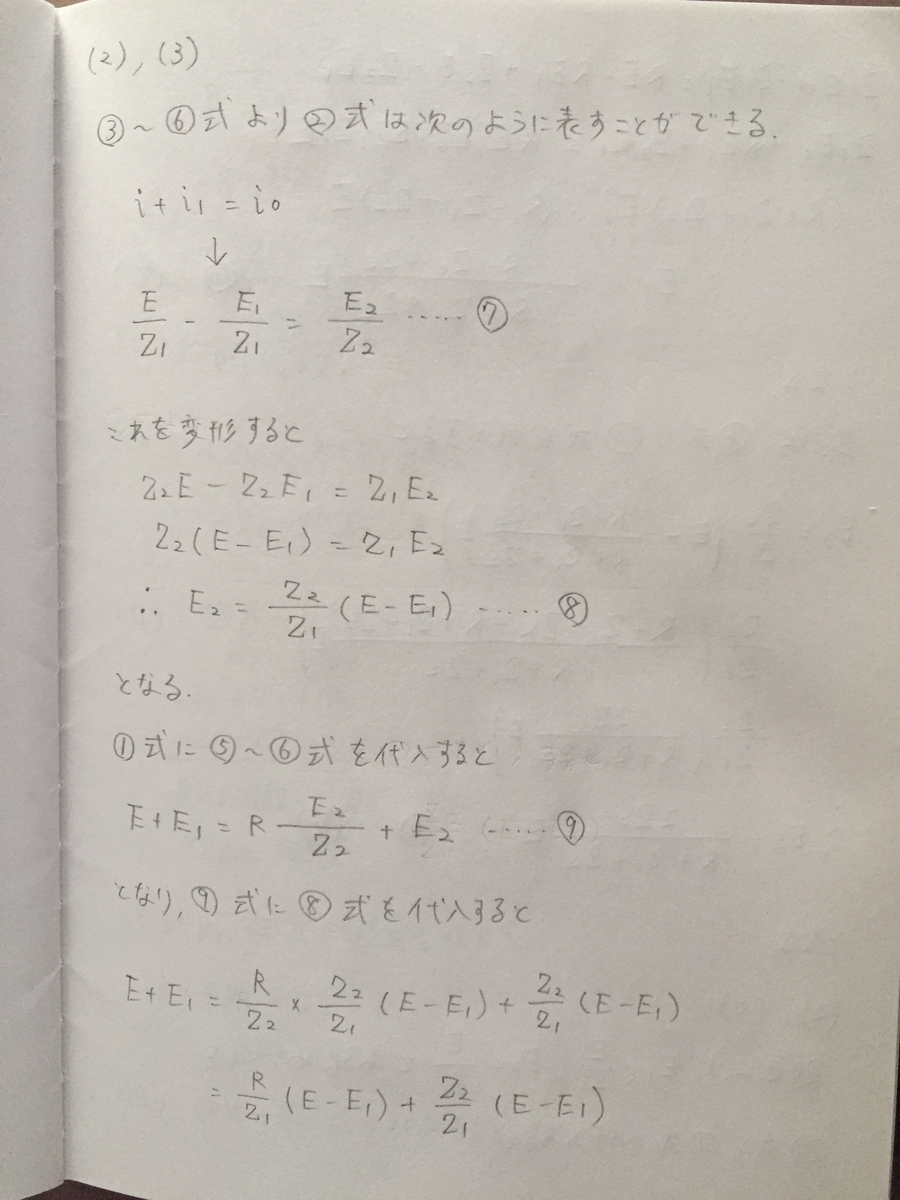 (2), (3)
③～⑥式より②式は次のように表すことができる.
i + i₁ = i₀
↓
E/Z₁ - E₁/Z₁ = E₂/Z₂ ‥‥‥ ⑦
これを変形すると
Z₂E - Z₂E₁ = Z₁E₂
Z₂(E - E₁) = Z₁E₂
∴ E₂ = Z₂/Z₁ (E - E₁) ‥‥‥ ⑧
となる.
①式に⑤～⑥式を代入すると
E + E₁ = R E₂/Z₂ + E₂ ‥‥‥ ⑨
となり, ⑨式に⑧式を代入すると
E + E₁ = R/Z₂ × Z₂/Z₁ (E - E₁) + Z₂/Z₁ (E - E₁)
= R/Z₁ (E - E₁) + Z₂/Z₁ (E - E₁)